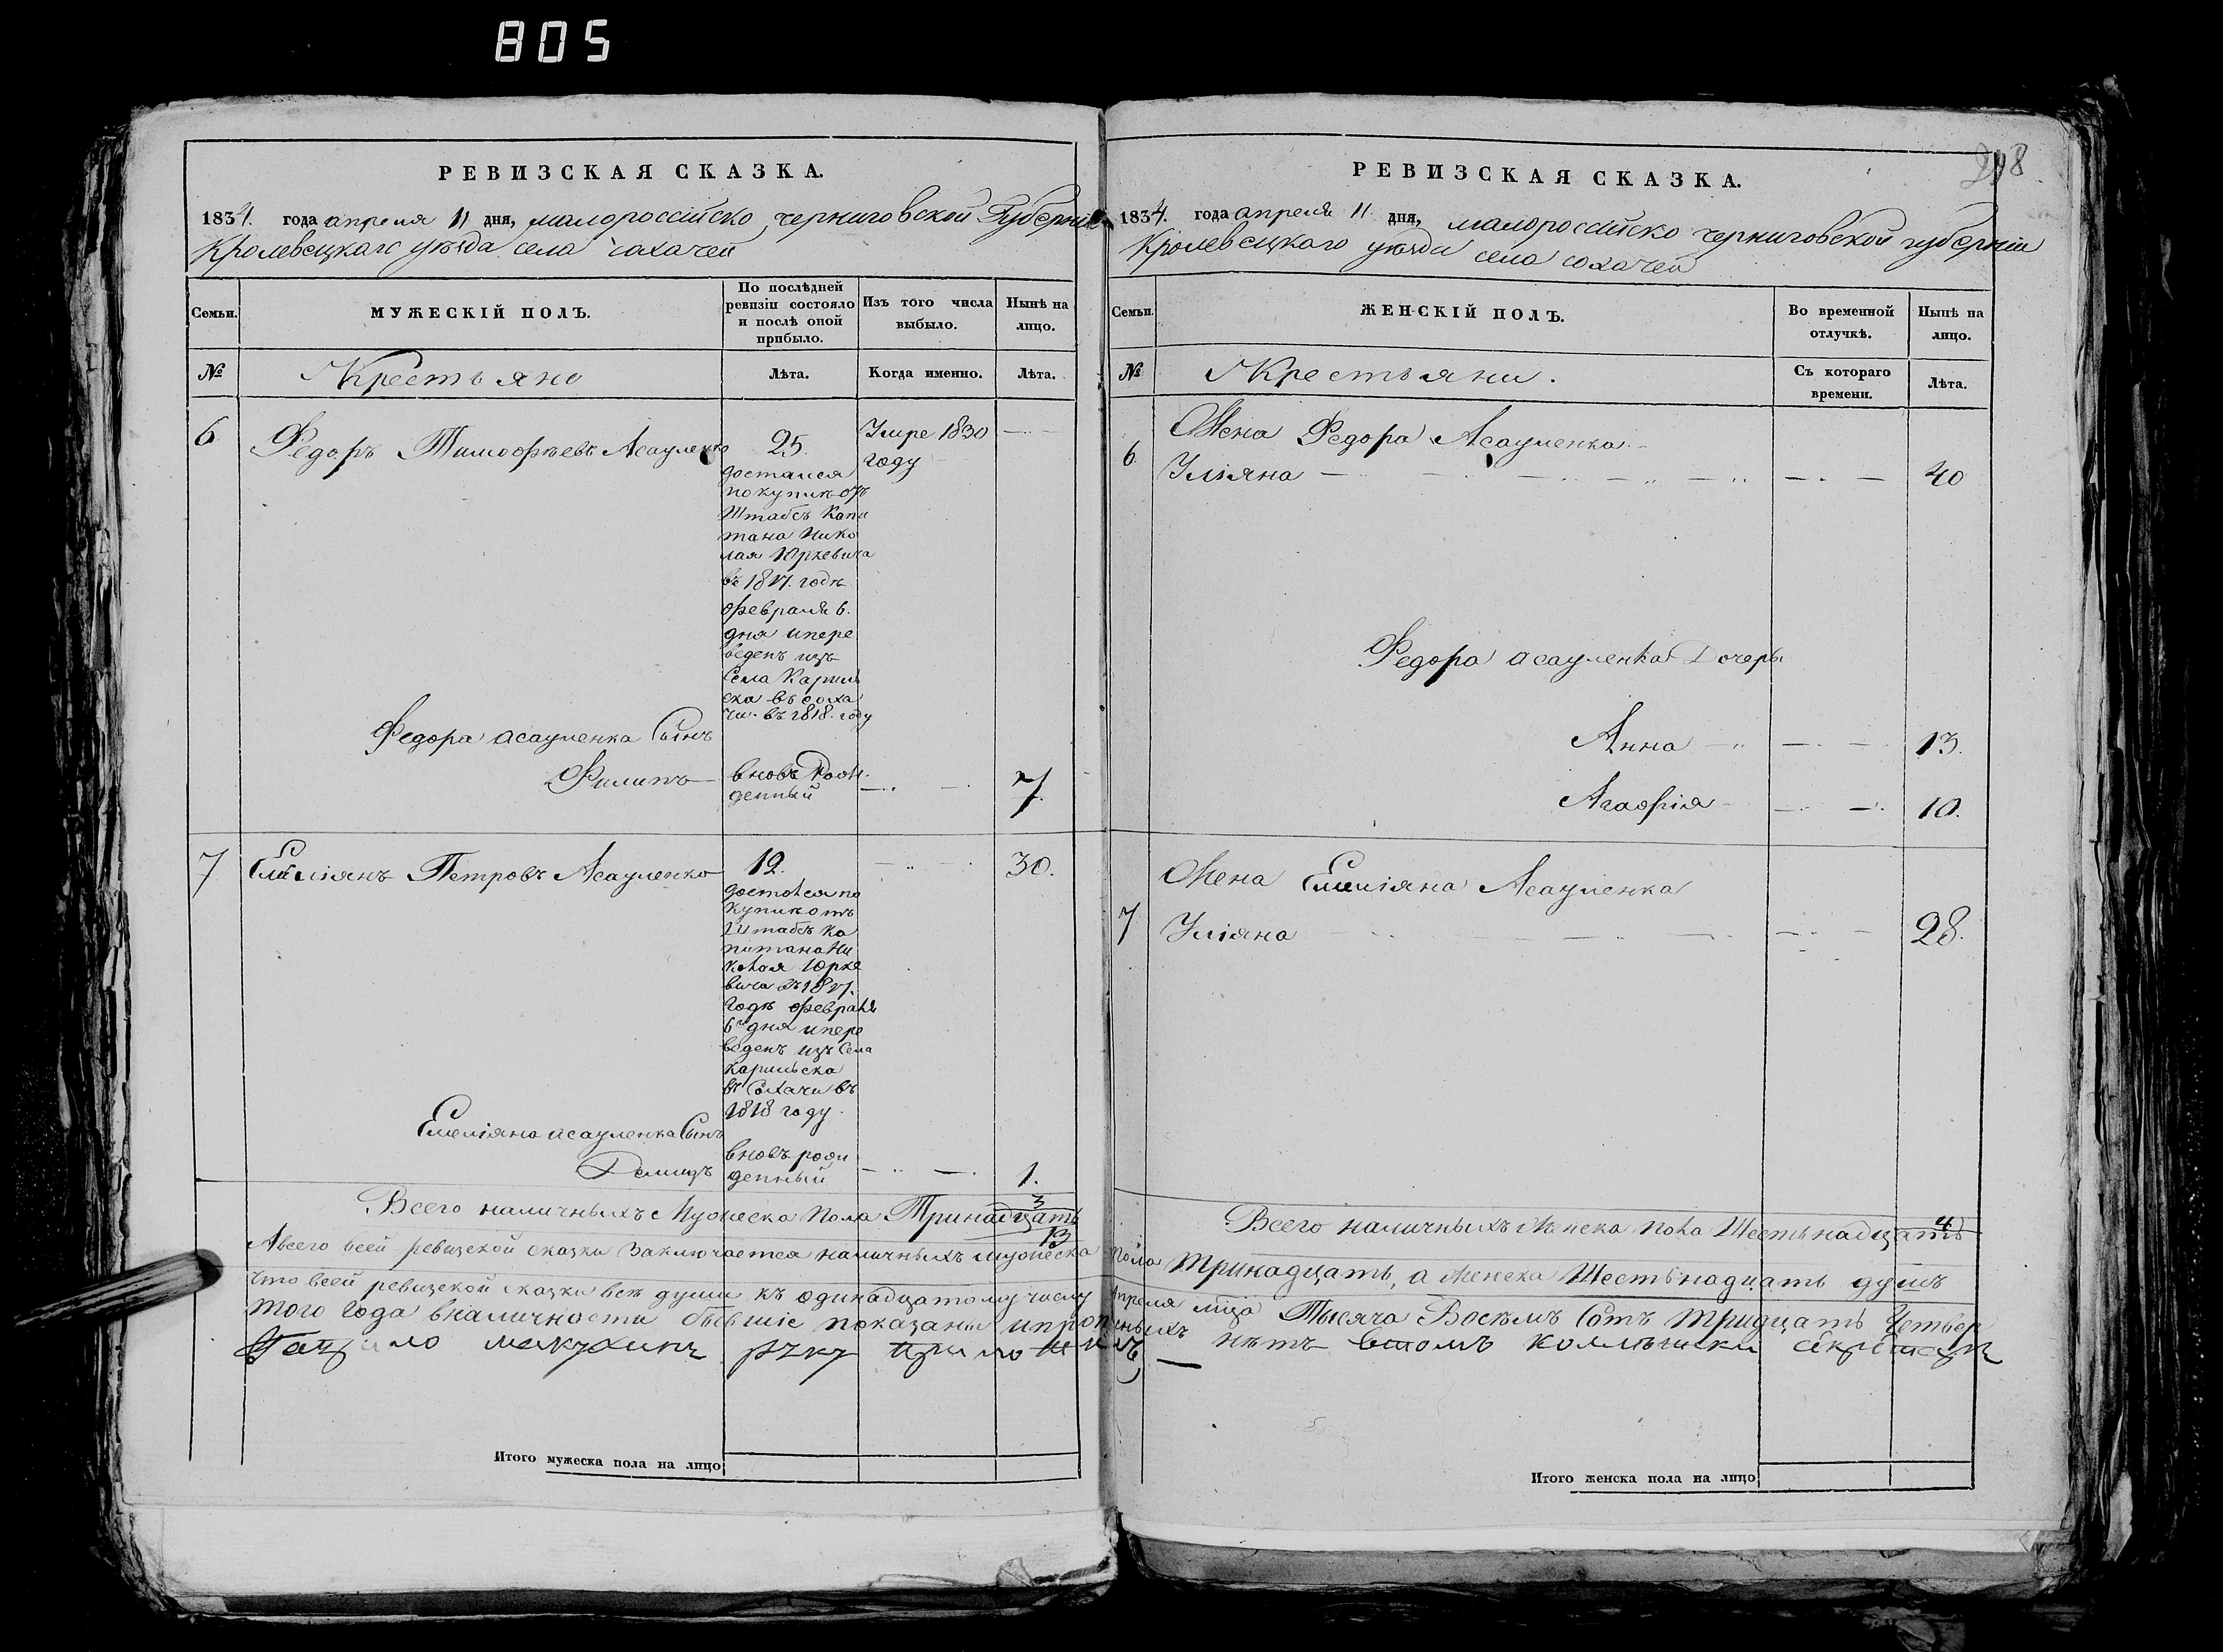 805
РЕВИЗСКАЯ СКАЗКА.
1834. года апреля 11 дня, малороссійско черниговской Губерніи
Кролевецкаго уѣзда села сохачей
Семьи.
МУЖЕСКІЙ ПОЛЪ.
По послѣдней ревизіи состояло и послѣ оной прибыло.
Изъ того числа выбыло.
Нынѣ на лицо.
№
Крестьяне
Лѣта.
Когда именно.
Лѣта.
6 Федоръ Тимофѣевъ Асауленко 25. Умре 1830 году
достался
покупкѣ отъ
Штабсъ Капи
тана Нико
лая Юркевича
въ 1817. годѣ
февраля 6.
дня и пере
веденъ изъ
Села Кариль
ска въ соха
чи. въ 1818. году
Федора асауленка Сынъ
Филипъ вновь рож
денный 7.
7 Емеліянъ Петровъ Асауленко 12. 30.
достался по
купкѣ отъ
Штабсъ Ка
питана Ни
колая Юрке
вича въ 1817.
годѣ февраля
6 дня и пере
веденъ изъ Села
карильска
въ Сохачи въ
1818 году.
Емеліяна асауленка Сынъ
Демидъ вновь рож
денный 1.
3
Всего наличныхъ Мужеска Пола Тринадцать
13
РЕВИЗСКАЯ СКАЗКА.
1834. года апреля 11 дня, малороссійско черниговской губерніи
Кролевецкаго уѣзда села сохачей
Семьи.
ЖЕНСКІЙ ПОЛЪ.
Во временной отлучкѣ.
Нынѣ на лицо.
№
Крестьяни.
Съ котораго времени.
Лѣта.
6. Жена Федора Асауленка
Уліяна 40
Федора асауленка Дочеры
Анна 13.
Агафія 10.
Жена Емеліяна Асауленка
7 Уліяна 28.
4
Всего наличныхъ женска пола Шестьнадцать
А всего всей ревизской сказки Заключается наличныхъ мужеска пола Тринадцать, а женска Шестьнадцать душъ
что всей ревизской сказки всѣ души къ одинадцатому числу Апреля мца Тысяча Восѣмъ Сотъ тридцать Четвер
того года вналичности бывшіе показаны и нѣтъ втомъ
Итого мужеска пола на лицо
Итого женска пола на лицо